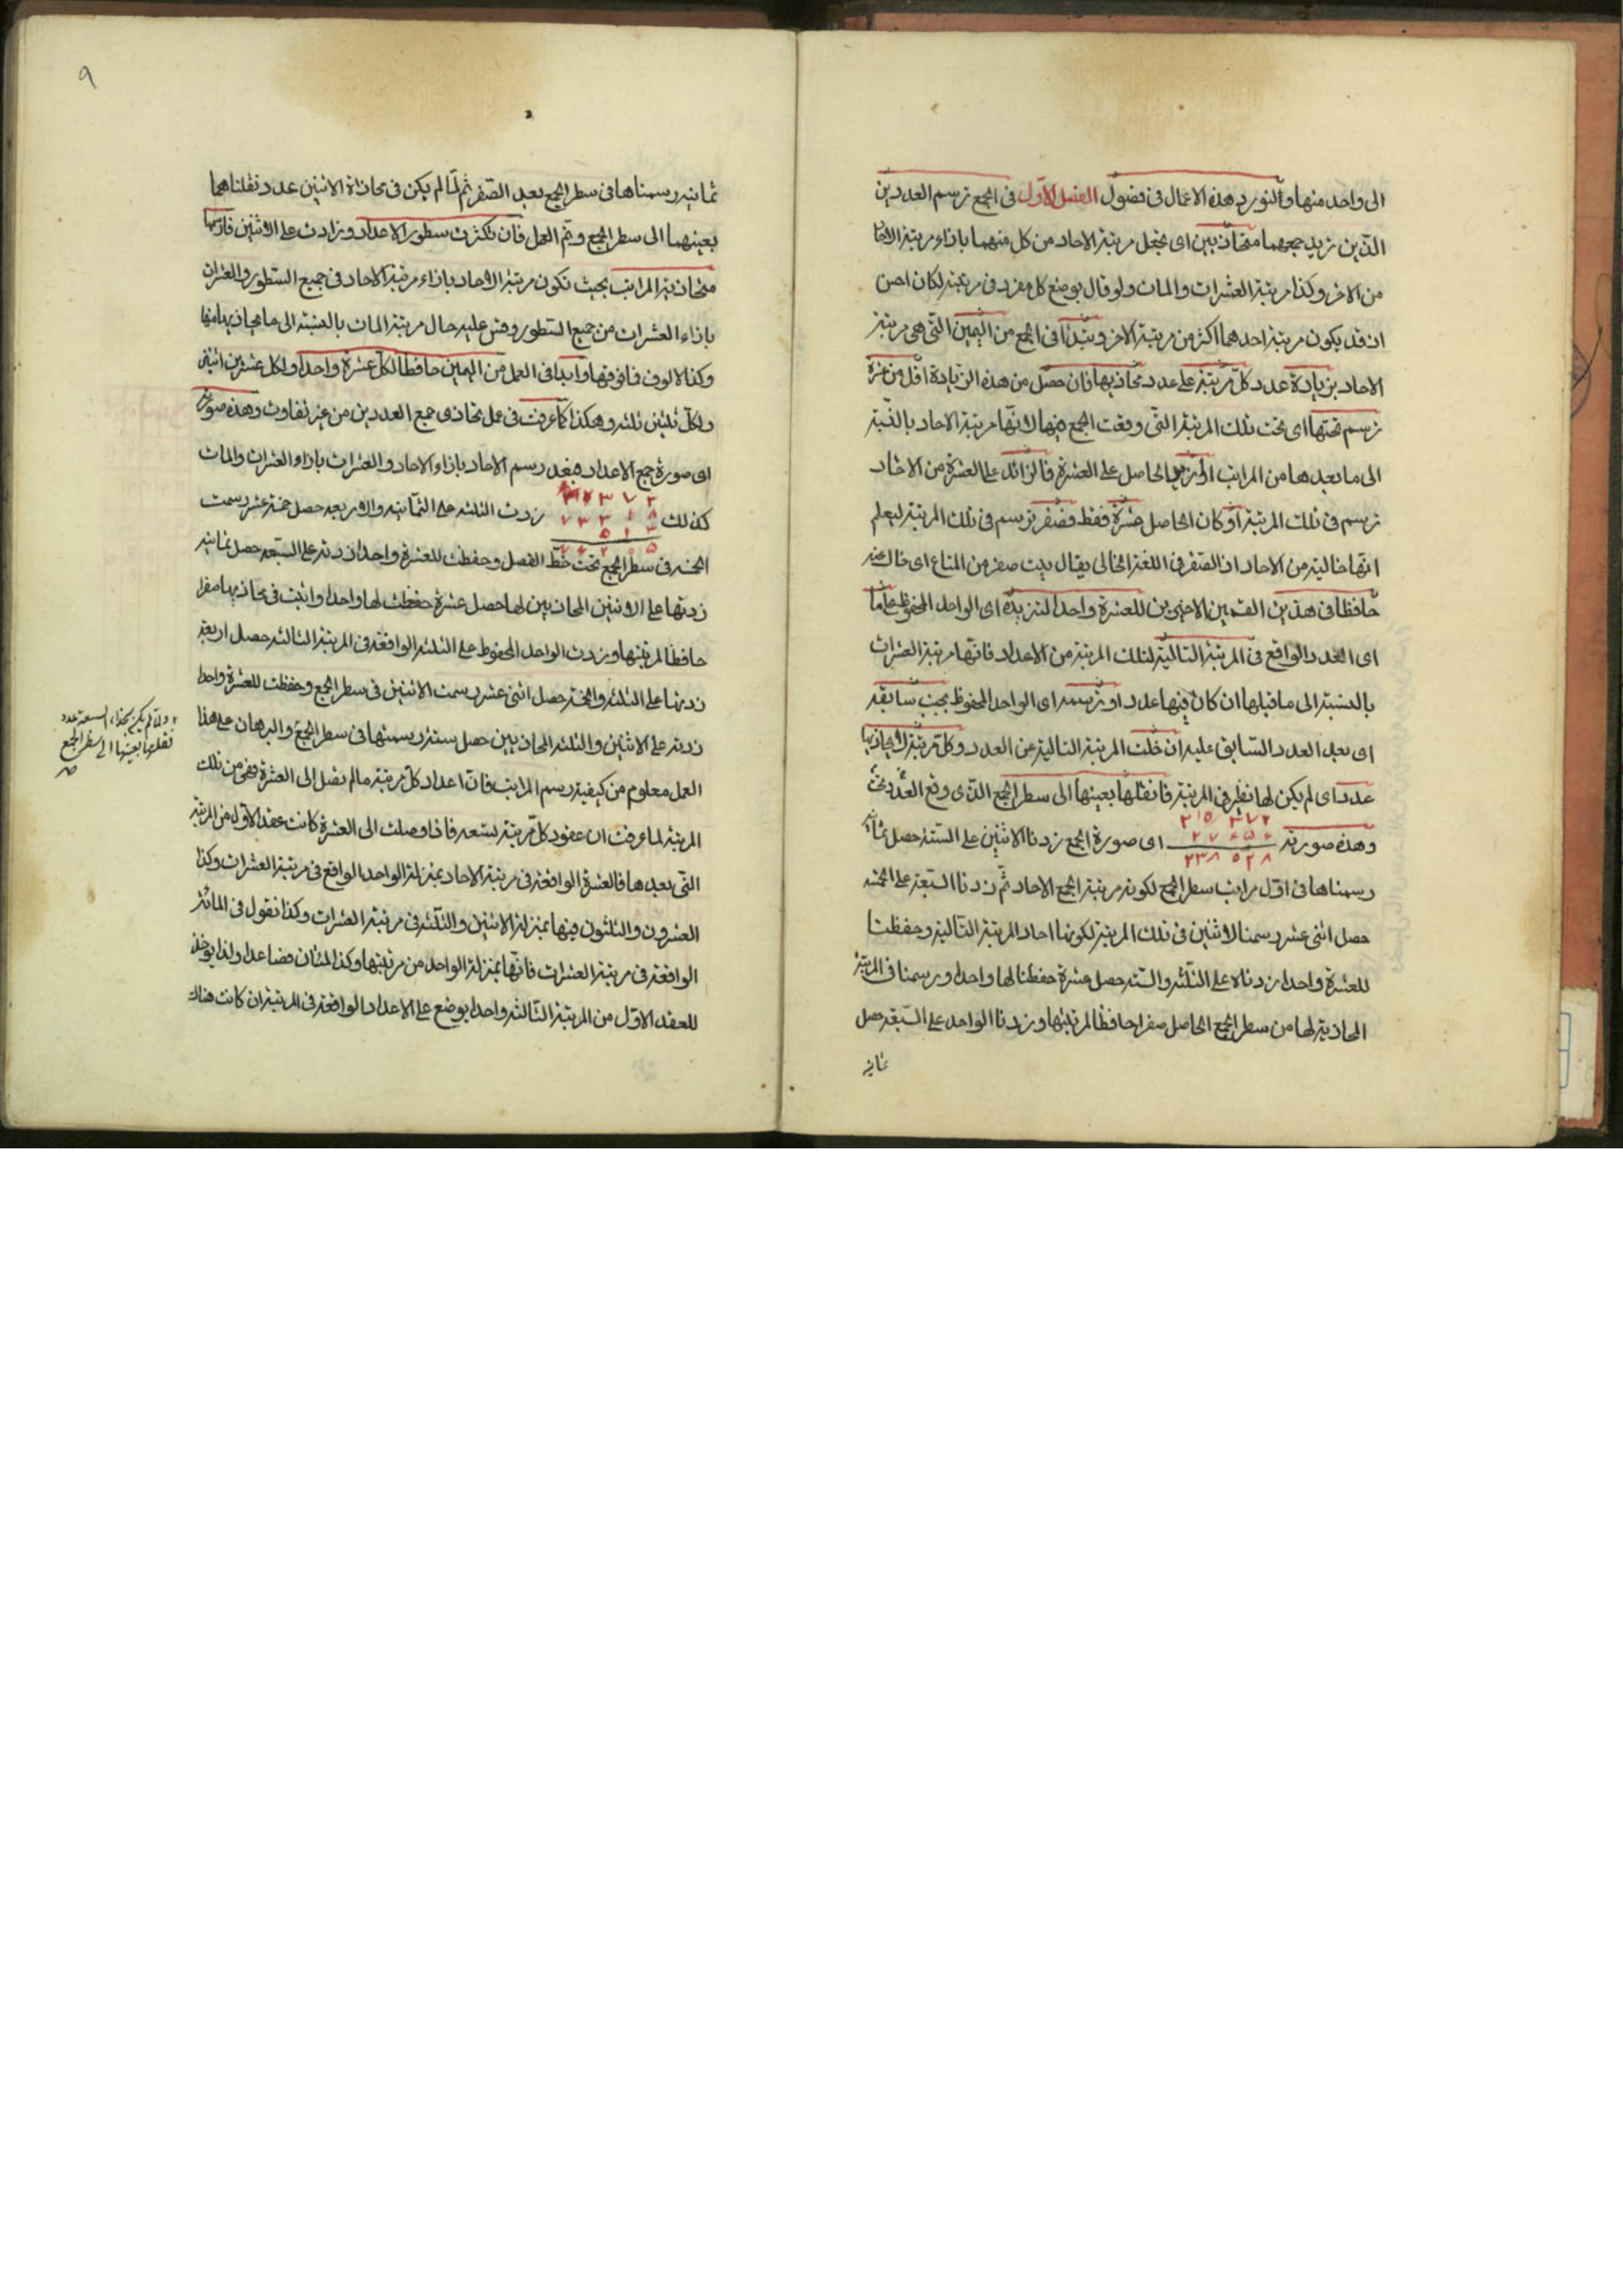 الى واحد منها ولنورد هذه الاعمال فى فصول الفصل الاول فى الجمع ترسم العددين
الذين تريد جمعهما متحاذيين اى تجعل مرتبة الاحاد من كل منهما بازاء مرتبة الاحاد
من الاخر وكذا مرتبة العشرات والمات ولو قال بوضع كل مفرد فى مرتبته لكان احسن
اذ قد يكون مرتبة احدهما اكثر من مرتبة الاخر وتبدأ فى الجمع من اليمين التى هى مرتبة
الاحاد بزيادة عدد كل مرتبة على عدد محاذيها فان حصل من هذه الزيادة اقل من عشرة
ترسم تحتها اى تحت تلك المرتبة التى وقعت الجمع فيها لانها مرتبة الاحاد بالنسبة
الى ما بعدها من المراتب او ازيد الحاصل على العشرة فالزائد على العشرة من الاحاد
ترسم فى تلك المرتبة او كان الحاصل عشرة فقط فصفر ترسم فى تلك المرتبة ليعلم
انها خالية من الاحاد اذ الصفر فى اللغة الخالى يقال بيت صفر من المتاع اى خال عنه
حافظا فى هذين القسمين الاخيرين للعشرة واحدا لتزيده اى الواحد المحفوظ على ما
اى العدد الواقع فى المرتبة التالية لتلك المرتبة من الاعداد فانها مرتبة العشرات
بالنسبة الى ما قبلها ان كان فيها عدد او ترسمه اى الواحد المحفوظ بجنب سابقه
اى بعد العدد السابق عليه ان خلت المرتبة التالية عن العدد وكل مرتبة لا يحاذيها
عدد اى لم يكن لها نظير فى المرتبة فانقلها بعينها الى سطر الجمع الذى وقع العدد تحته
وهذه صورته اى صورة الجمع زدنا الاثنين على الستة حصل ثمانية
٢٣٨٥٢٨
رسمناها فى اول مراتب سطر الجمع لكونه مرتبة الجمع الاحاد ثم زدنا السبعة على الخمسة
حصل اثنى عشر رسمنا الاثنين فى تلك المرتبة لكونها احاد المرتبة التالية وحفظنا
للعشرة واحدا زدناه على الثلثة والستة حصل عشرة حفظنا لها واحدا ورسمنا فى المرتبة
المحاذية لها من سطر الجمع الحاصل صفرا حافظا لمرتبتها وزدنا الواحد على السبعة حصل
ثمانية
٩
ثمانية رسمناها فى سطر الجمع بعد الصفر ثم لما لم يكن فى محاذاة الاثنين عدد نقلناهما
بعينهما الى سطر الجمع وتم العمل فان تكثرت سطور الاعداد وزادت على الاثنين فارسمها
متحاذية المراتب بحيث تكون مرتبة الاحاد بازاء مرتبة الاحاد فى جميع السطور والعشرات
بازاء العشرات من جميع السطور وقس عليه حال مرتبة المات بالنسبة الى ما يحاذيها منها
وكذا الالوف فما فوقها وابدا فى العمل من اليمين حافظا لكل عشرة واحدا ولكل عشرين اثنين
ولكل ثلثين ثلثة وهكذا كما عرفت فى عمل تحاذى جمع العددين من غير تفاوت وهذه صورته
اى صورة جمع الاعداد فبعد رسم الاحاد بازاء الاحاد والعشرات بازاء العشرات والمات
كذلك زدت الثلثة على الثمانية والاربعة حصل خمسة عشر رسمت
الخمسة فى سطر الجمع تحت خط الفصل وحفظت للعشرة واحدا زدته على السبعة حصل ثمانية
زدتها على الاثنين المحاذيين لها حصل عشرة حفظت لها واحدا واثبت فى محاذيها صفرا
حافظا لمرتبتها وزدت الواحد المحفوظ على الثلثة الواقعة فى المرتبة الثالثة حصل اربعة
زدتها على الثلثة والخمسة حصل اثنى عشر رسمت الاثنين فى سطر الجمع وحفظت للعشرة واحدا
زدته على الاثنين والثلثة المحاذيين حصل ستة رسمتها فى سطر الجمع والبرهان على هذا
العمل معلوم من كيفية رسم المراتب فان اعداد كل مرتبة ما لم يصل الى العشرة فهى من تلك
المرتبة لما عرفت ان عقود كل مرتبة تسعة فاذا وصلت الى العشرة كانت عقد الاول من المرتبة
التى بعدها فالعشرة الواقعة فى مرتبة الاحاد بمنزلة الواحد الواقع فى مرتبة العشرات وكذا
العشرون والثلثون فيها بمنزلة الاثنين والثلثة فى مرتبة العشرات وكذا نقول فى المائة
الواقعة فى مرتبة العشرات فانها بمنزلة الواحد من مرتبتها وكذا المئتان فصاعدا ولذا يؤخذ
للعقد الاول من المرتبة الثالثة واحدا يوضع على الاعداد الواقعة فى المرتبة ان كانت هناك
ولما لم يكن بحذاء السبعة عدد
نقلتها بعينها الى سطر الجمع